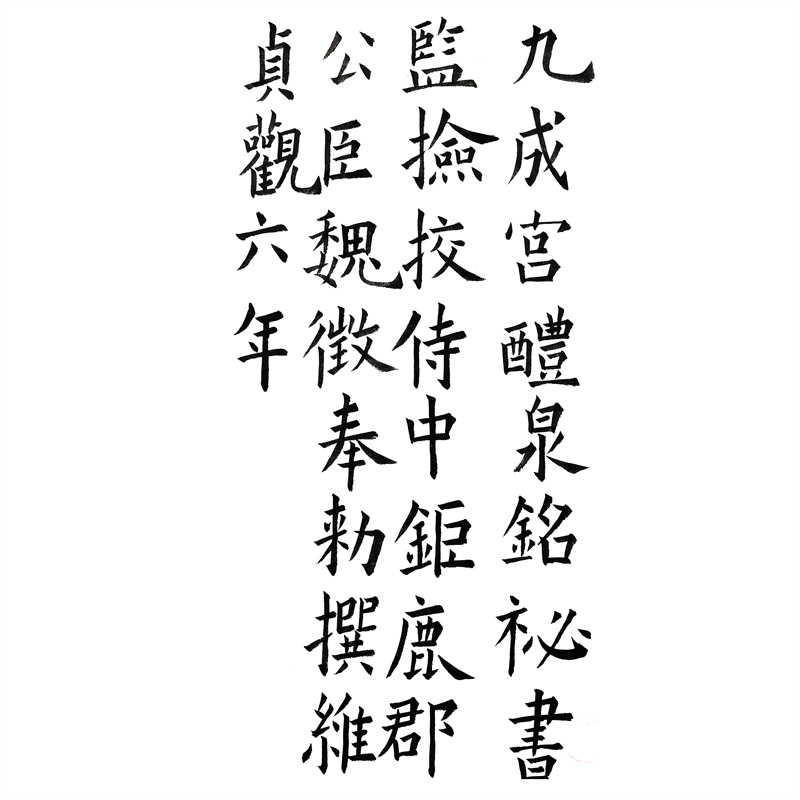 九成宮醴泉銘祕書
監撿挍侍中鉅鹿郡
公臣魏徵奉勑撰維
貞觀六年